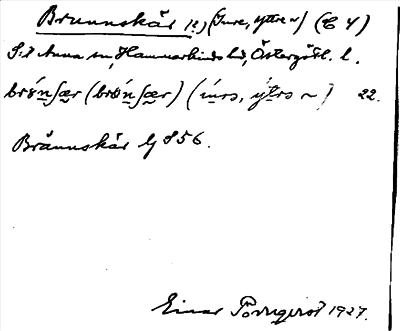 Brunnskär (?) (Inre, yttre ~) (E 4)
S:t Anna sn, Hammarkinds hd, Östergötl. l.
brǿnʃær (brönʃær) (ínrə, ýtrə ~) 22.
Brännskär G 856.
Einar Törnqvist 1927.